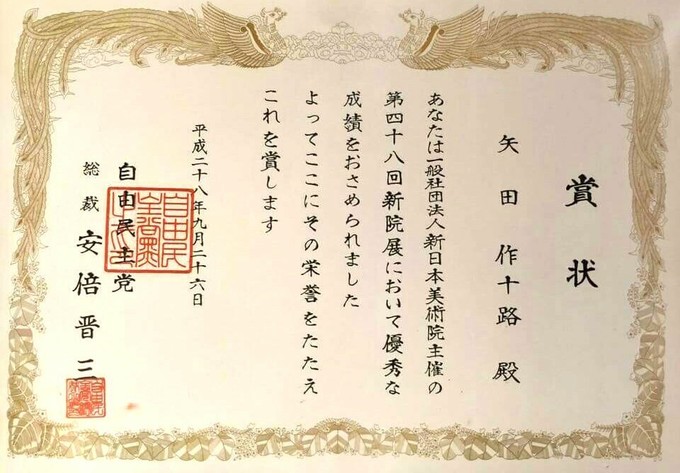 賞状
矢田作十路殿
あなたは一般社団法人新日本美術院主催の
第四十八回新院展において優秀な
成績をおさめられました
よってここにその栄誉をたたえ
これを賞します
平成二十八年九月二十六日
自由民主党
総裁 安倍晋三